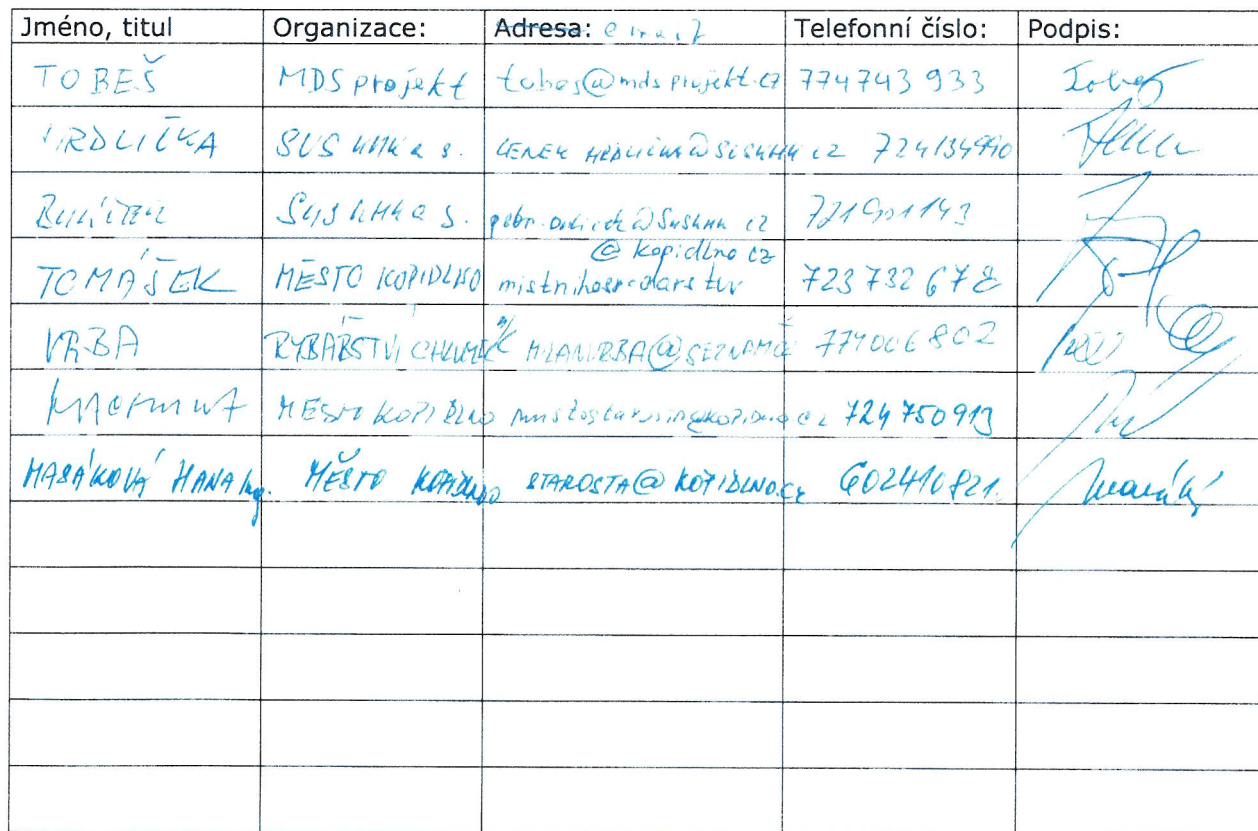 Jméno, titul Organizace: Adresa: email Telefonní číslo: Podpis:
TOBEŠ MDS projekt tobes@mdsprojekt.cz 774743 933 Tobeš
HRDLIČKA SUS KHK a s. 724134990
SUS KHK a s. 721901143
@kopidlno cz
TOMÁŠEK MĚSTO KOPIDLNO mistnihospodarstvi 723 732 678
VRBA RYBÁŘSTVÍ CHLUMEC n/C MILANVRBA@SEZNAM.CZ 774006802
MĚSTO KOPIDLNO mistostarosta@kopidlno cz 724 750913
MASÁKOVÁ HANA Ing. MĚSTO KOPIDLNO STAROSTA@KOPIDLNO.CZ 602410821.